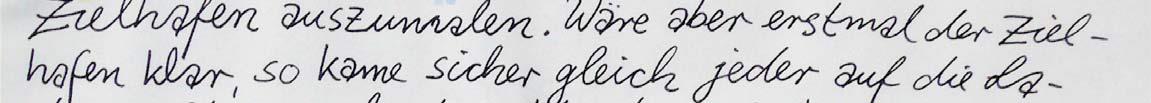 Zielhafen auszumalen. Wäre aber erstmal der Ziel-
hafen klar, so kame sicher gleich jeder auf die La-